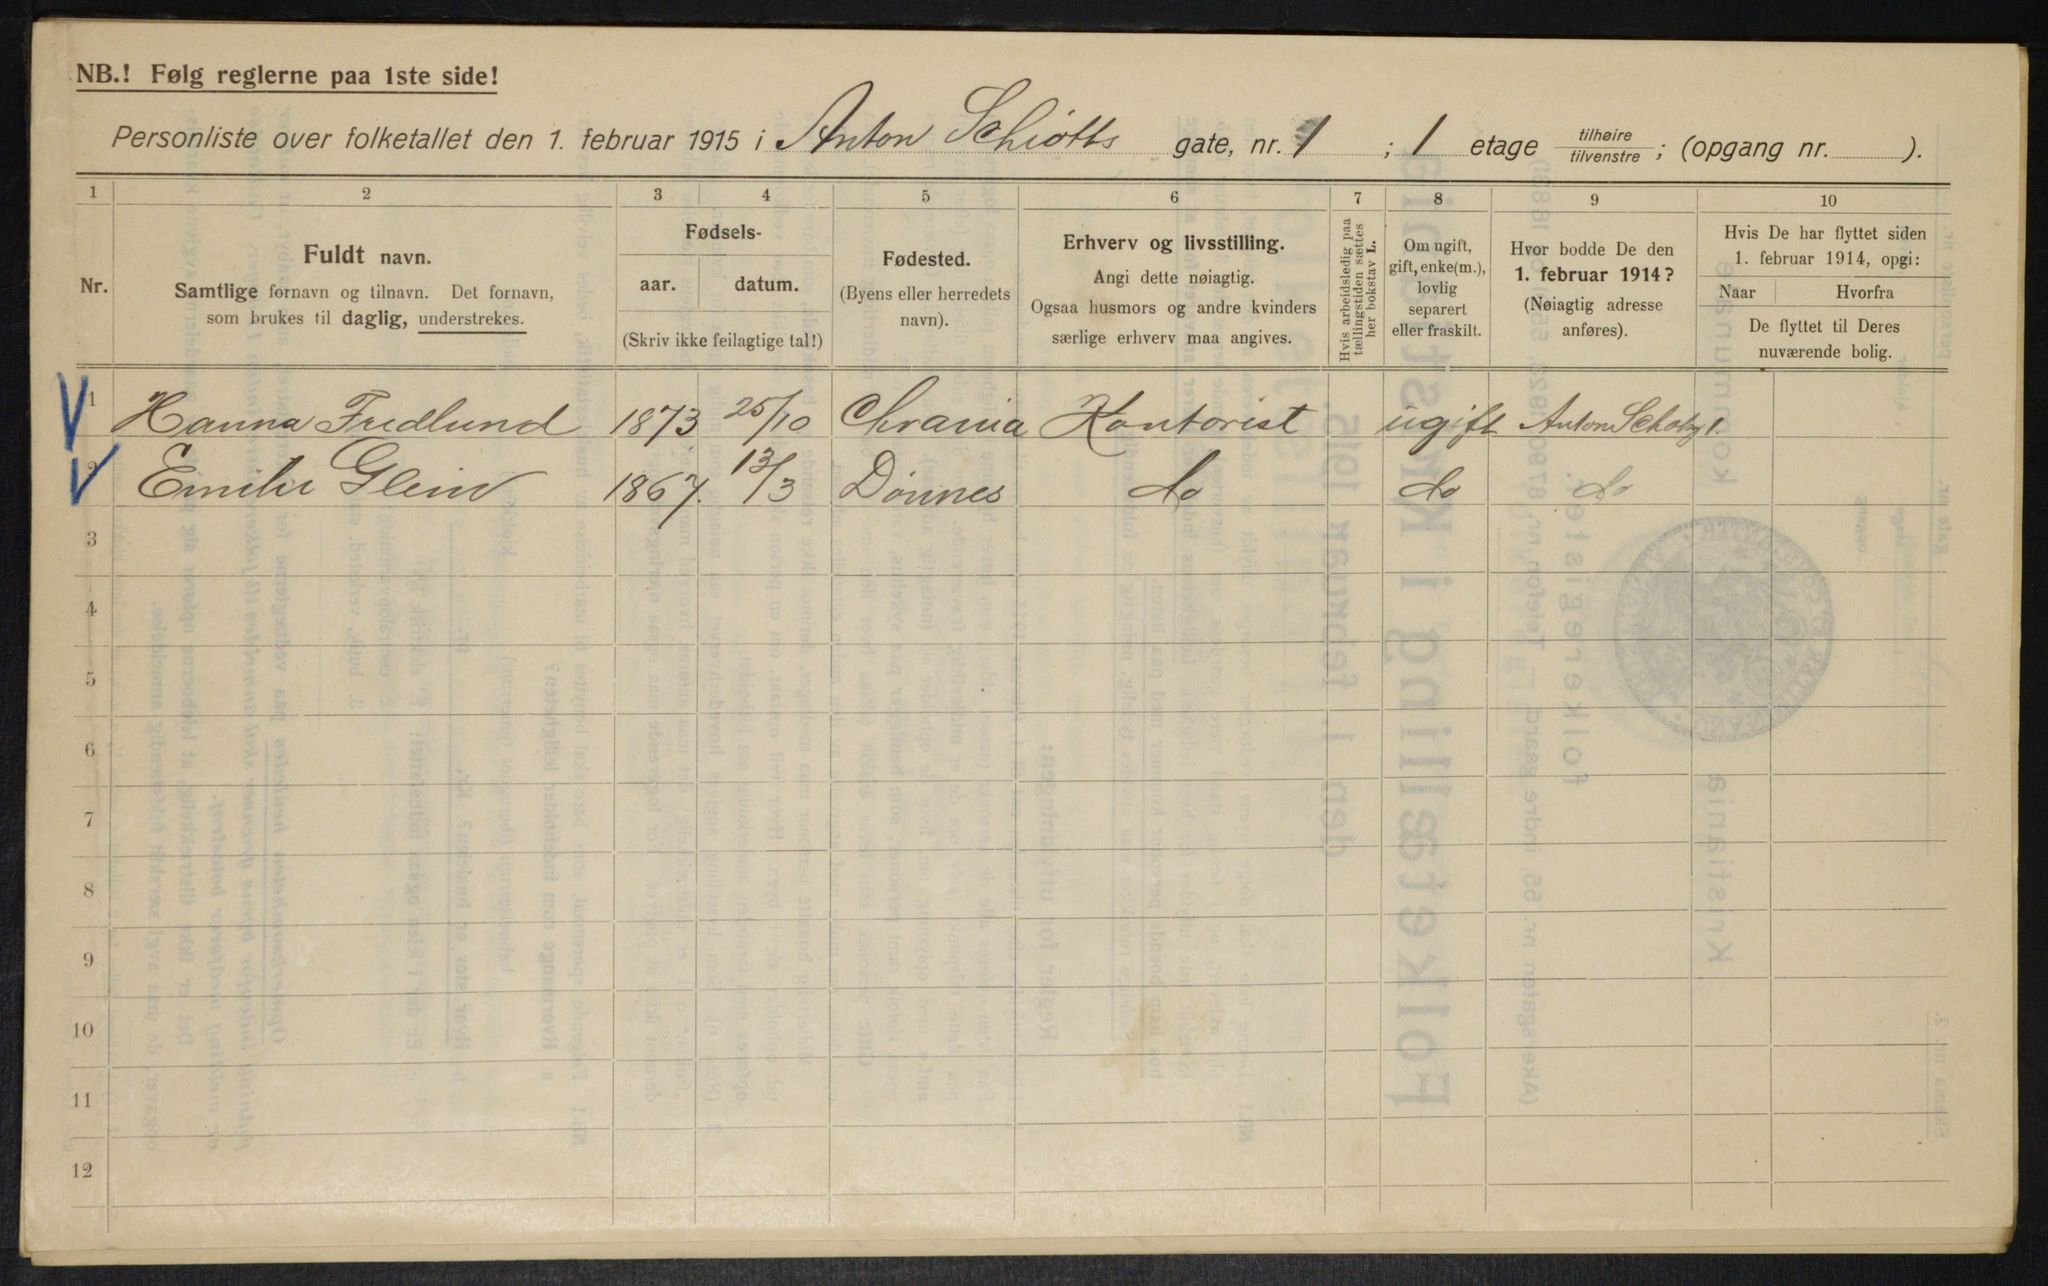 NB.! Følg reglerne paa 1ste side!
Personliste over folketallet den 1. februar 1915 i Anton Schiøtts gate, nr. 1 ; 1 etage tilhøire / tilvenstre ; (opgang nr. ).
1 2 3 4 5 6 7 8 9 10
Nr.
Fuldt navn.
Samtlige fornavn og tilnavn. Det fornavn,
som brukes til daglig, understrekes.
Fødsels-
aar. datum.
(Skriv ikke feilagtige tal!)
Fødested.
(Byens eller herredets
navn).
Erhverv og livsstilling.
Angi dette nøiagtig.
Ogsaa husmors og andre kvinders
særlige erhverv maa angives.
Hvis arbeidsledig paa
tællingstiden sættes
her bokstav L.
Om ugift,
gift, enke(m.),
lovlig
separert
eller fraskilt.
Hvor bodde De den
1. februar 1914?
(Nøiagtig adresse
anføres).
Hvis De har flyttet siden
1. februar 1914, opgi:
Naar Hvorfra
De flyttet til Deres
nuværende bolig.
1 Hanna Fredlund 1873 25/10 Chrania Kontorist ugift Anton Schøtz 1.
2 Emilie Glein 1867. 13/3 Dønnes do do do
3
4
5
6
7
8
9
10
11
12